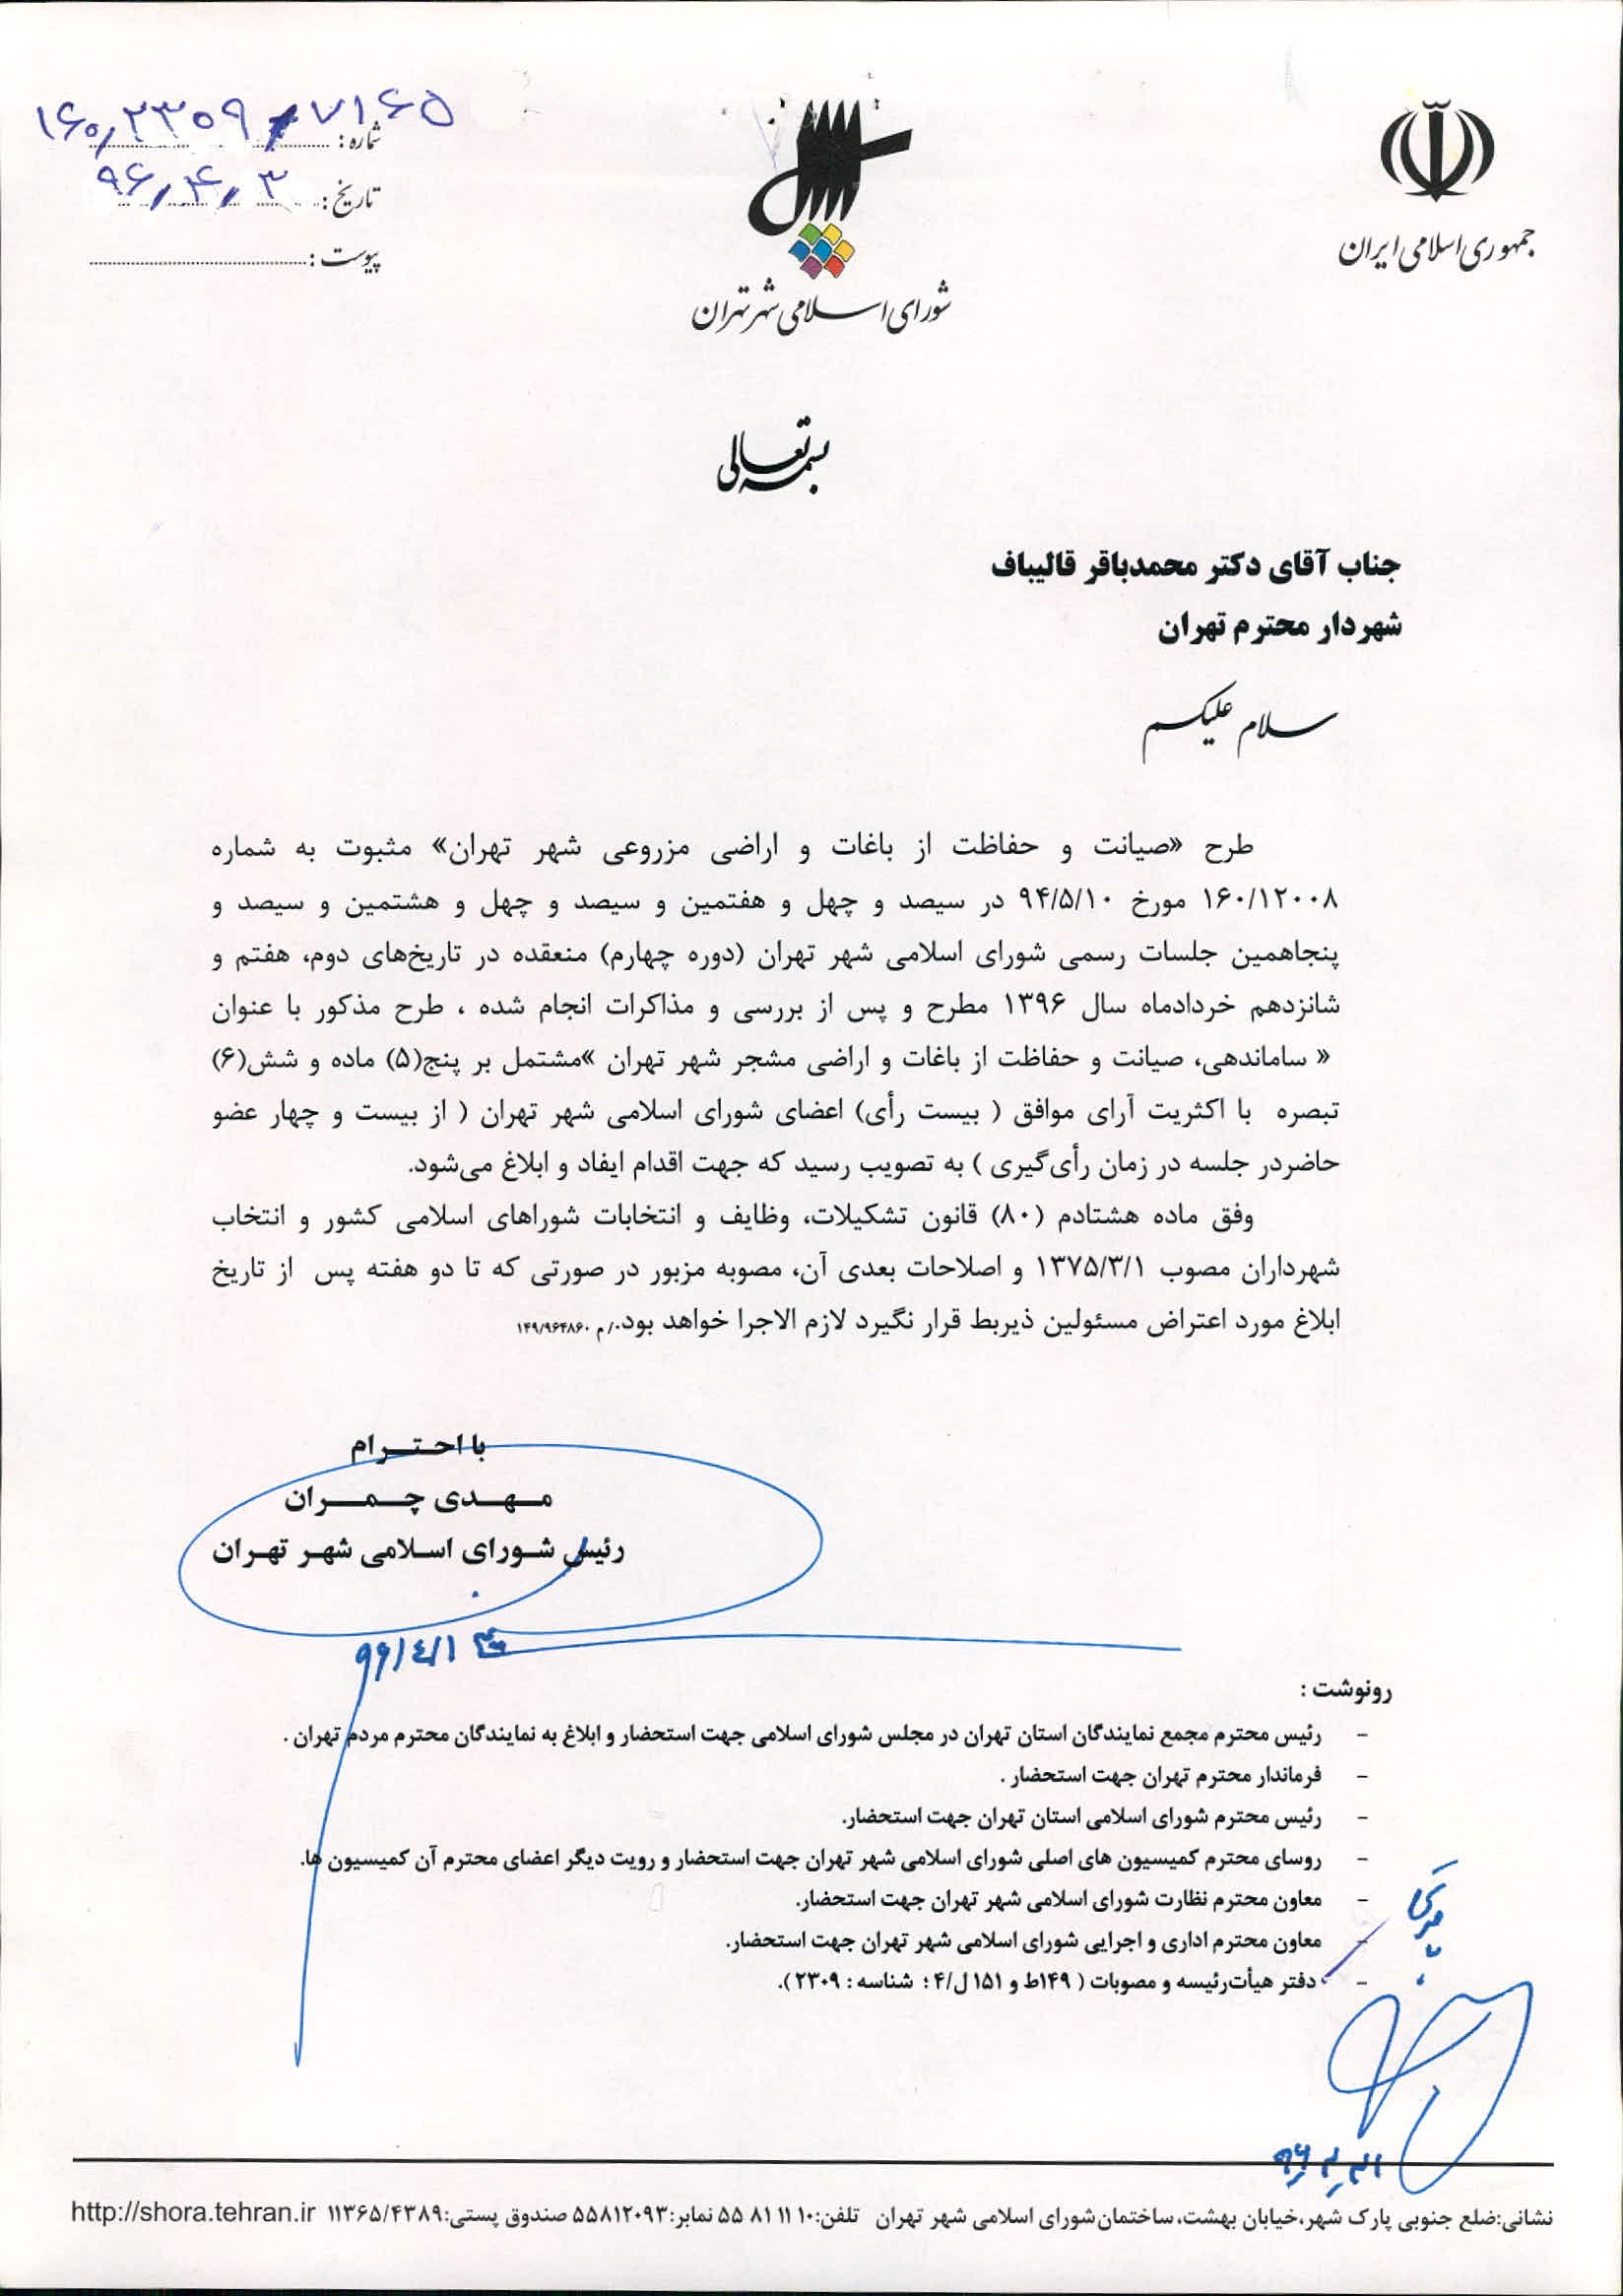 جمهوری اسلامی ایران
شورای اسلامی شهر تهران
شماره : ۱۶۰/۲۳۰۹/۷۱۶۵
تاریخ : ۹۶/۴/۳
پیوست :
بسمه تعالی
جناب آقای دکتر محمدباقر قالیباف
شهردار محترم تهران
سلام علیکم
طرح «صیانت و حفاظت از باغات و اراضی مزروعی شهر تهران» مثبوت به شماره
۱۶۰/۱۲۰۰۸ مورخ ۹۴/۵/۱۰ در سیصد و چهل و هفتمین و سیصد و چهل و هشتمین و سیصد و
پنجاهمین جلسات رسمی شورای اسلامی شهر تهران (دوره چهارم) منعقده در تاریخ‌های دوم، هفتم و
شانزدهم خردادماه سال ۱۳۹۶ مطرح و پس از بررسی و مذاکرات انجام شده ، طرح مذکور با عنوان
« ساماندهی، صیانت و حفاظت از باغات و اراضی مشجر شهر تهران »مشتمل بر پنج(۵) ماده و شش(۶)
تبصره با اکثریت آرای موافق ( بیست رأی) اعضای شورای اسلامی شهر تهران ( از بیست و چهار عضو
حاضردر جلسه در زمان رأی‌گیری ) به تصویب رسید که جهت اقدام ایفاد و ابلاغ می‌شود.
وفق ماده هشتادم (۸۰) قانون تشکیلات، وظایف و انتخابات شوراهای اسلامی کشور و انتخاب
شهرداران مصوب ۱۳۷۵/۳/۱ و اصلاحات بعدی آن، مصوبه مزبور در صورتی که تا دو هفته پس از تاریخ
ابلاغ مورد اعتراض مسئولین ذیربط قرار نگیرد لازم الاجرا خواهد بود./م ۱۴۹/۹۶۴۸۶۰
با احترام
مهدی چمران
رئیس شورای اسلامی شهر تهران
۹۶/۴/۱
رونوشت :
- رئیس محترم مجمع نمایندگان استان تهران در مجلس شورای اسلامی جهت استحضار و ابلاغ به نمایندگان محترم مردم تهران .
- فرماندار محترم تهران جهت استحضار .
- رئیس محترم شورای اسلامی استان تهران جهت استحضار.
- روسای محترم کمیسیون های اصلی شورای اسلامی شهر تهران جهت استحضار و رویت دیگر اعضای محترم آن کمیسیون ها.
- معاون محترم نظارت شورای اسلامی شهر تهران جهت استحضار.
- معاون محترم اداری و اجرایی شورای اسلامی شهر تهران جهت استحضار.
- دفتر هیأت‌رئیسه و مصوبات ( ۱۴۹ط و ۱۵۱ ل/۴ ؛ شناسه : ۲۳۰۹ ).
نشانی:ضلع جنوبی پارک شهر،خیابان بهشت،ساختمان شورای اسلامی شهر تهران تلفن:۱۰ ۱۱ ۱۱ ۸۱ ۵۵ نمابر:۵۵۸۱۲۰۹۳ صندوق پستی:۱۱۳۶۵/۴۳۸۹ http://shora.tehran.ir